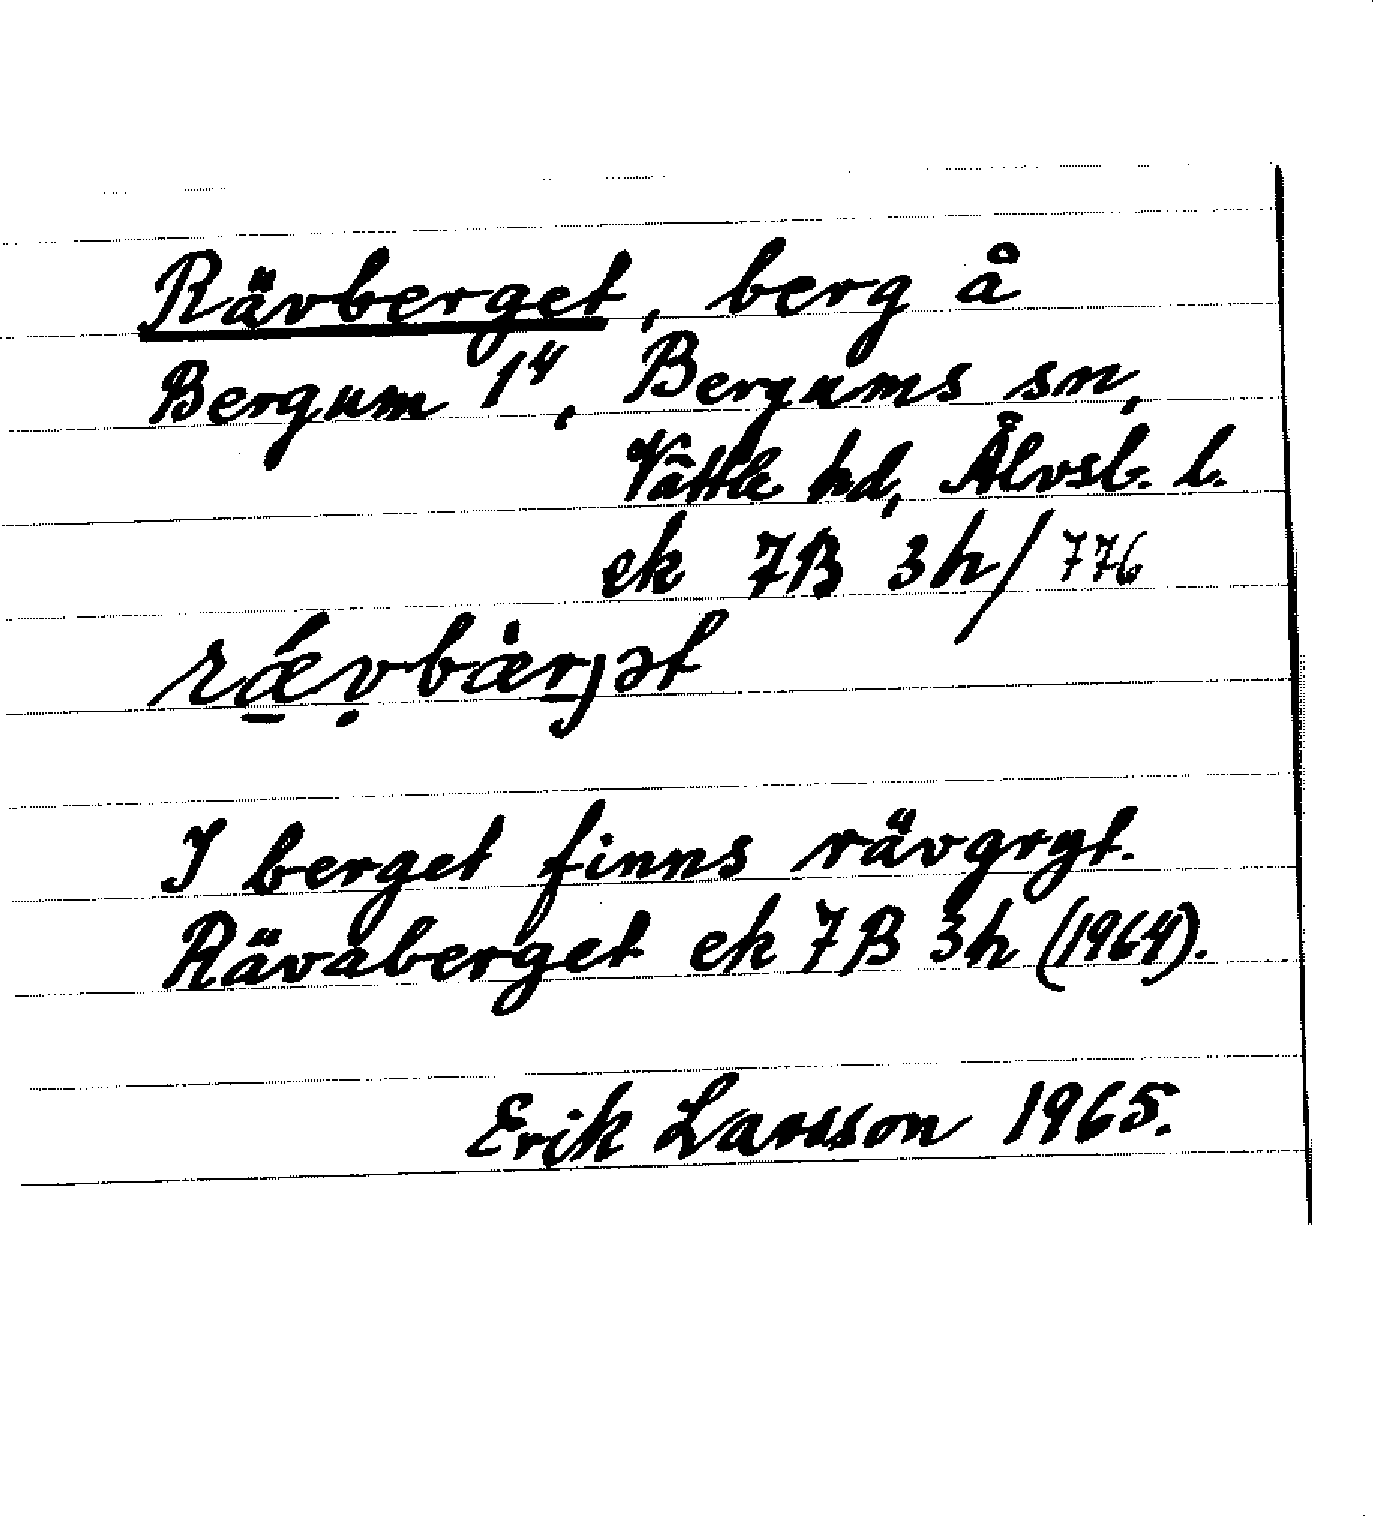 Rävberget, berg å
Bergum 1⁴, Bergums sn,
Vättle hd, Älvsb. l.
ek 7B 3h/776
rǽ̱ṿbæ̀ṟjət
I berget finns rävgryt.
Rävaberget ek 7B 3h (1964).
Erik Larsson 1965.